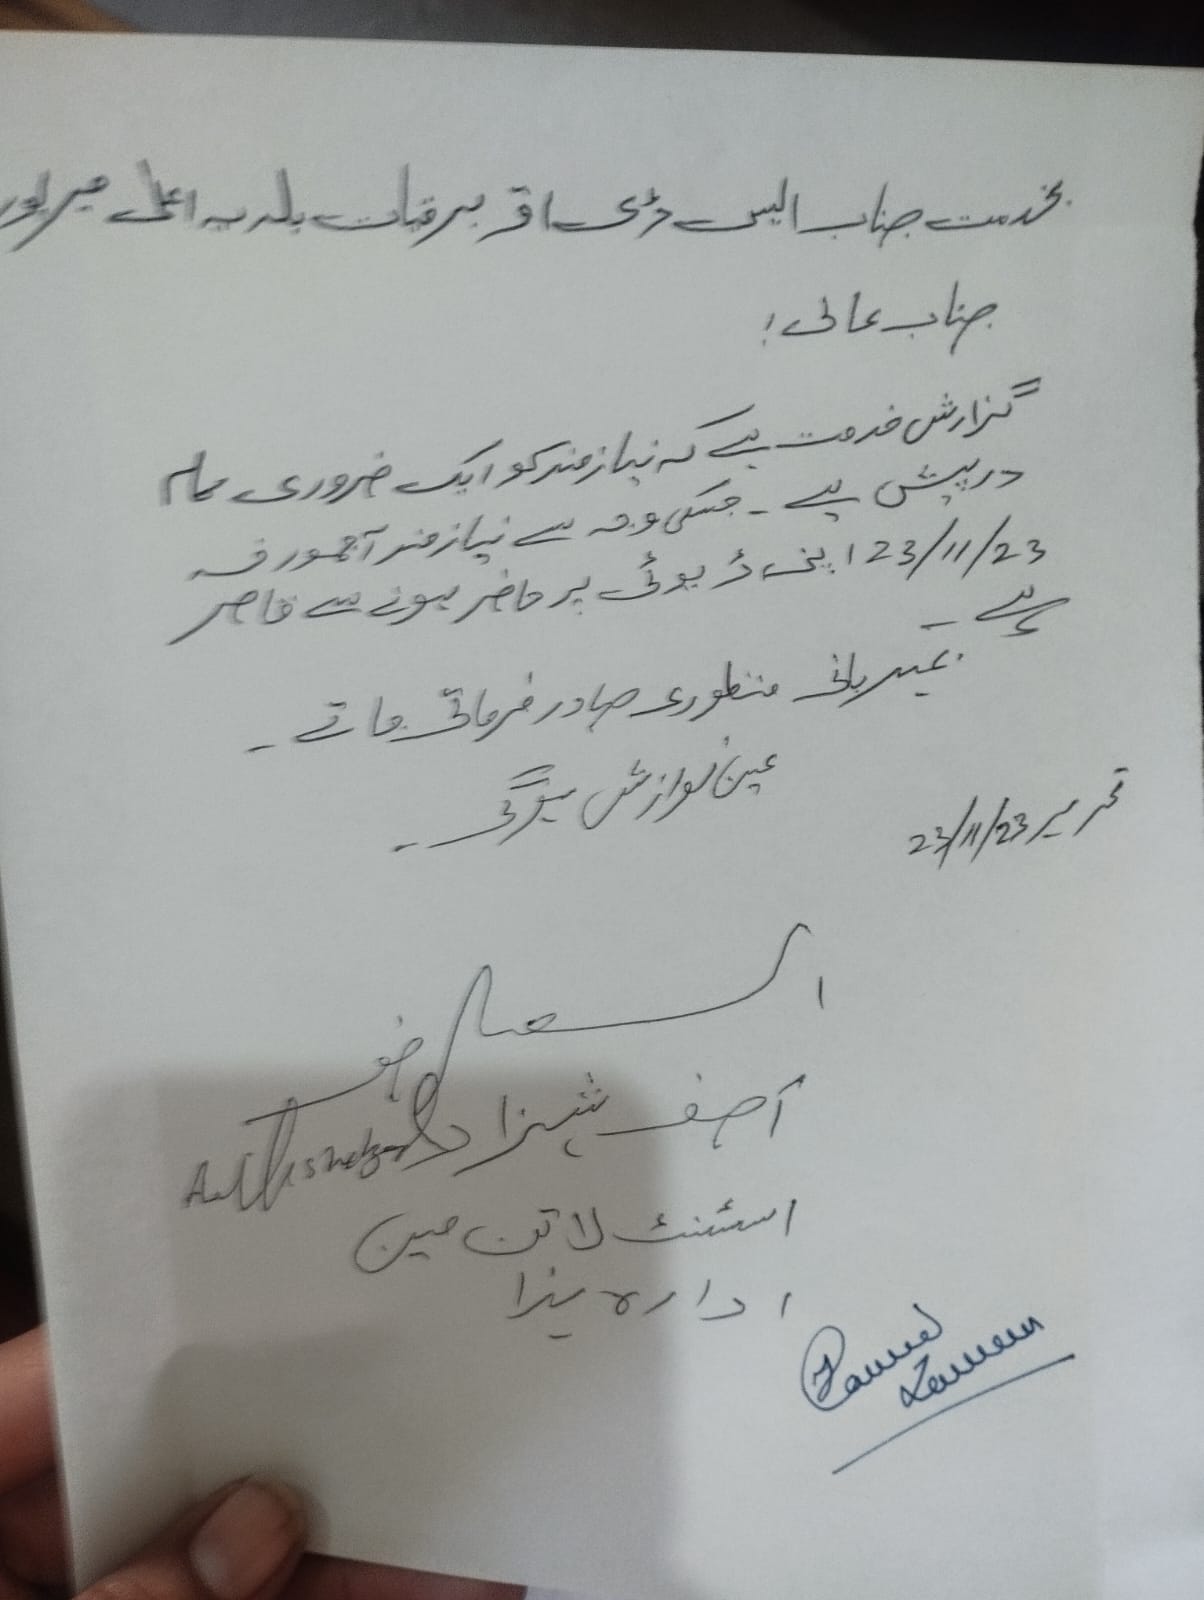 بخدمت جناب ایس ڈی او برقیات بلدیہ اعلیٰ میرپور
جناب عالی!
گزارش خدمت ہے کہ نیازمند کو ایک ضروری کام
درپیش ہے۔ جسکی وجہ سے نیازمند آج مورخہ
23/11/23 اپنی ڈیوٹی پر حاضر ہونے سے قاصر
ہے۔
بمہربانی منظوری صادر فرمائی جائے۔
عین نوازش ہوگی۔
تحریر 23/11/23
العارض
آصف شہزاد
اسٹنٹ لائن مین
ادارہ ہذا
Zaman